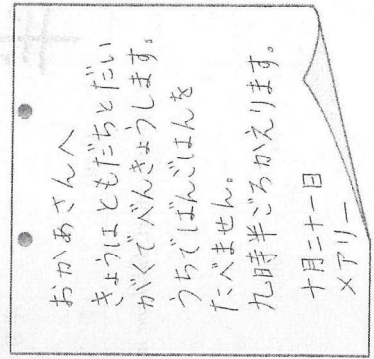 おかあさんへ
きょうはともだちとだい
がくでべんきょうします。
うちでばんごはんを
たべません。
九時半ごろかえります。
十月二十一日
メアリー